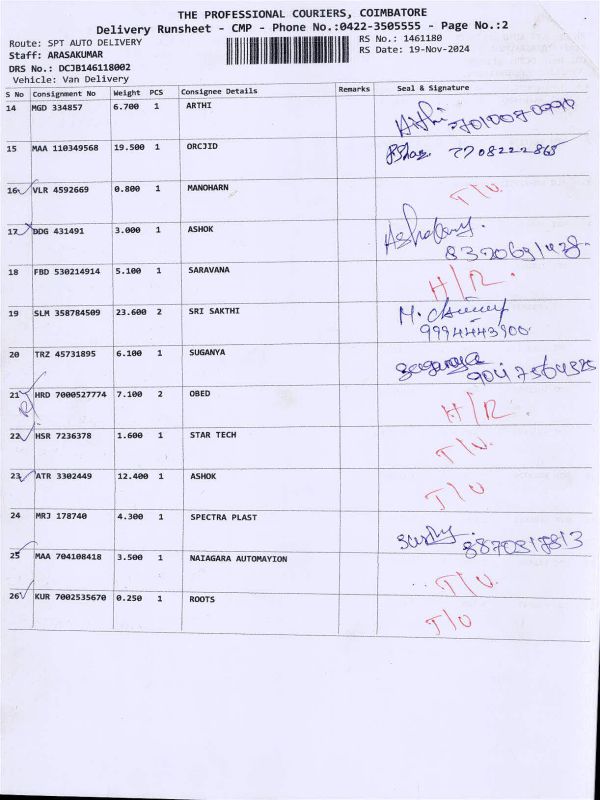 THE PROFESSIONAL COURIERS, COIMBATORE
Delivery Runsheet - CMP - Phone No.:0422-3505555 - Page No.:2
Route: SPT AUTO DELIVERY
RS No.: 1461180
Staff: ARASAKUMAR
RS Date: 19-Nov-2024
DRS No.: DCJB146118002
Vehicle: Van Delivery
S No Consignment No Weight PCS Consignee Details Remarks Seal & Signature
14 MGD 334857 6.700 1 ARTHI
15 MAA 110349568 19.500 1 ORCJID 7708222865
16 VLR 4592669 0.800 1 MANOHARN T/U
17 DDG 431491 3.000 1 ASHOK
18 FBD 530214914 5.100 1 SARAVANA H/R.
19 SLM 358784509 23.600 2 SRI SAKTHI 9994443900
20 TRZ 45731895 6.100 1 SUGANYA
21 HRD 7000527774 7.100 2 OBED H/R
22 HSR 7236378 1.600 1 STAR TECH T/U
23 ATR 3302449 12.400 1 ASHOK T/U
24 MRJ 178740 4.300 1 SPECTRA PLAST
25 MAA 704108418 3.500 1 NAIAGARA AUTOMAYION T/U
26 KUR 7002535670 0.250 1 ROOTS T/U